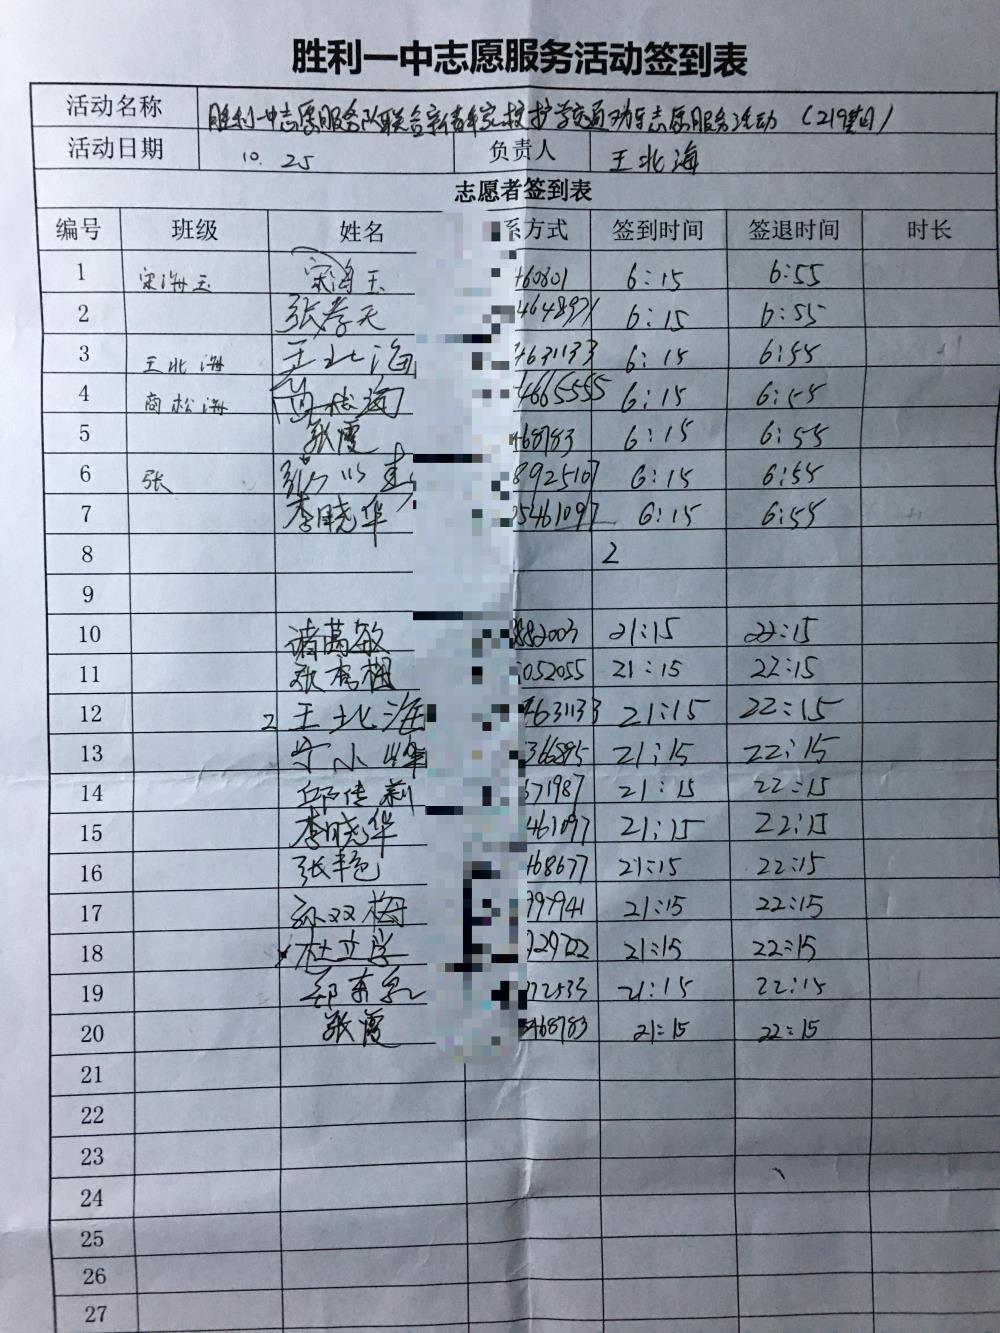 胜利一中志愿服务活动签到表
活动名称 胜利一中志愿服务队联合新青年家校护学交通劝导志愿服务活动 (219期)
活动日期 10.25 负责人 王北海
志愿者签到表
编号 班级 姓名 系方式 签到时间 签退时间 时长
1 宋海玉 宋海玉 460801 6:15 6:55
2 张孝天 4648971 6:15 6:55
3 王北海 王北海 4631133 6:15 6:55
4 商松海 商松海 4665555 6:15 6:55
5 张霞 468783 6:15 6:55
6 张 8925107 6:15 6:55
7 李晓华 5461097 6:15 6:55
8 2
9
10 诸葛敏 882003 21:15 22:15
11 张秀梅 052055 21:15 22:15
12 2 王北海 4631133 21:15 22:15
13 宁小烨 366895 21:15 22:15
14 邱传莉 671987 21:15 22:15
15 李晓华 461097 21:15 22:15
16 张艳 468677 21:15 22:15
17 孙双梅 997941 21:15 22:15
18 杜立学 729722 21:15 22:15
19 郑东 772535 21:15 22:15
20 张霞 468783 21:15 22:15
21
22
23
24
25
26
27